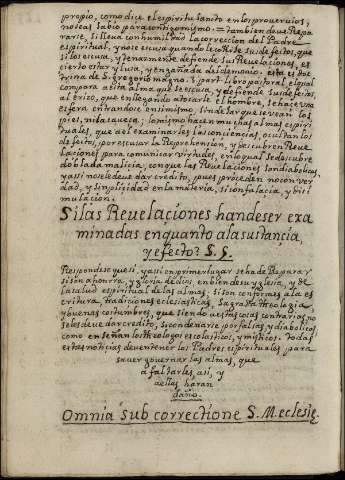 propio, como dice el espiritu santo en los proverbios,
no seas sabio para contigo mismo. = tambien deue Repa
rarse, si lleua con humildad la correccion de el Padre
espiritual, y no se escusa quando le coRije sus defectos, que
si los escusa, y tenazmente defiende sus Reuelaciones, es
cierto estar ylusa, y engañada del demonio. esta es doc
trina de S. Gregorio magno. 3. part. libro pastoral el qual
compara a esta alma que se escusa, y defiende sus defectos,
al erizo, que en llegando a tocarle el hombre, se haze una
esfera entrandose en si mismo, sin dexar que se vean los
pies, ni la caueça; lo mismo hacen muchas almas espiri
tuales, que al examinarles las conciencias, ocultan los
defectos, por escusar la Reprehension, y descubren Reue
laciones para comunicar virtudes, en lo qual se descubre
doblada malicia, con que las Reuelaciones son diabolicas,
y assi no se le deue dar credito, pues proceden no con ver
dad, y simplicidad en la materia, si con falacia, y disi
mulacion.
Si las Reuelaciones han de ser exa
minadas en quanto a la sustancia,
y efecto? §. 5.
Respondese que si, y assi en primer lugar se ha de Reparar
si son a honrra, y gloria de dios en bien de su yglesia, y de
la salud espiritual de las almas. si son conformes a la es
critura, tradiciones eclesiasticas, Sagrada theologia,
y buenas costumbres, que siendo a estas cosas contrarias, no
se les deue dar credito, si condenarse por falsas, y diabolicas
como enseñan los theologos escolasticos, y misticos. todas
estas noticias deuen tener los Padres espirituales para
sauer gouernar las almas, que
a faltarles, asi, y
a ellas haran
daño.
Omnia sub correctione S. M. ecclesię